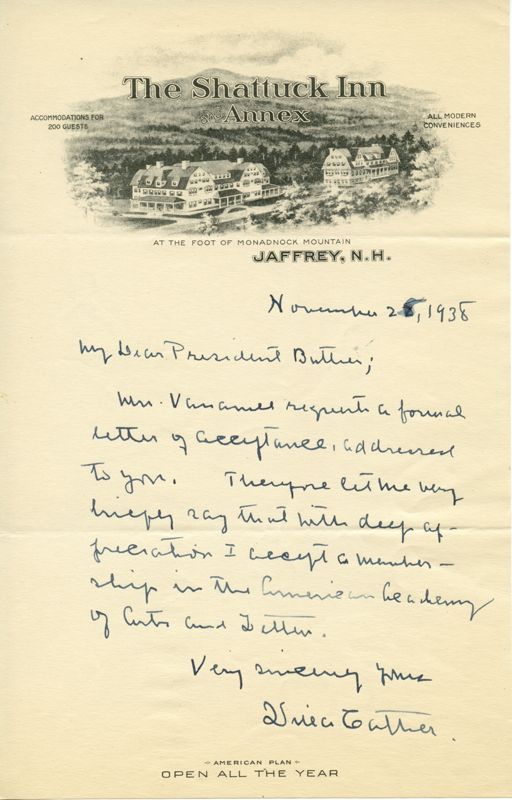 The Shattuck Inn
and Annex
ACCOMMODATIONS FOR
200 GUESTS
ALL MODERN
CONVENIENCES
AT THE FOOT OF MONADNOCK MOUNTAIN
JAFFREY, N.H.
November 28, 1938
My Dear President Butler;
Mrs. Vanamee requests a formal
letter of acceptance, addressed
to you. Therefore let me very
briefly say that with deep ap-
preciation I accept a member-
ship in the American Academy
of Arts and Letters.
Very sincerely yours
Willa Cather.
AMERICAN PLAN
OPEN ALL THE YEAR